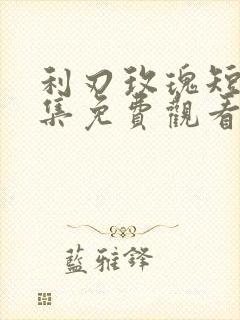 利刃玫瑰短
集免費觀看
藍雅鋒